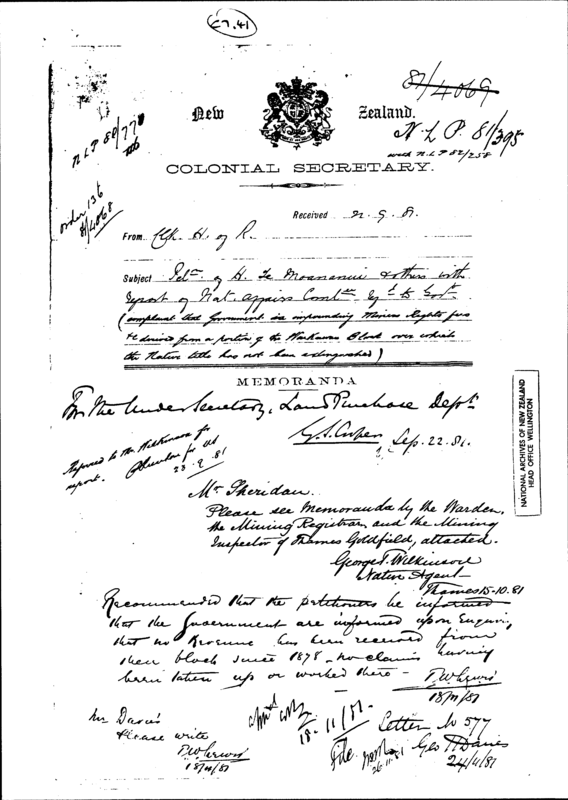 C7.41
81/4069
New Zealand.
N.L.P. 81/395
with N.L.P. 82/258
N.L.P 80/778
COLONIAL SECRETARY.
order 136
81/4068
Received 21. 9. 81.
From Clk. H. of R.
Subject Petn. of H. Te Moananui & others with
report of Nat. Affairs Comtee
(complaint that Government are impounding Miners Rights fees
&c derived from a portion of the Waikawau Block over which
the Native title has not been extinguished)
MEMORANDA
The Under Secretary, Land Purchase Dept.
G.S. Cooper Sep. 22. 81.
Referred to Mr. Wilkinson for
report.
23. 9. 81
Mr Sheridan.
Please see Memoranda by the Warden,
the Mining Registrar, and the Mining
Inspector of Thames Goldfield, attached.
George T. Wilkinson
Native Agent
Thames 15-10.81
Recommended that the petitioners be informed
that the Government are informed upon Enquiry,
that no Revenue has been received from
their block since 1878 - no claims having
been taken up or worked there -
T.W. Lewis
18/11/81
Mr Davies
Please write
T.W. Lewis
18/11/81
18-11/81.
File
26.11.81
Letter No 577
Geo H Davies
24/11/81
NATIONAL ARCHIVES OF NEW ZEALAND
HEAD OFFICE WELLINGTON